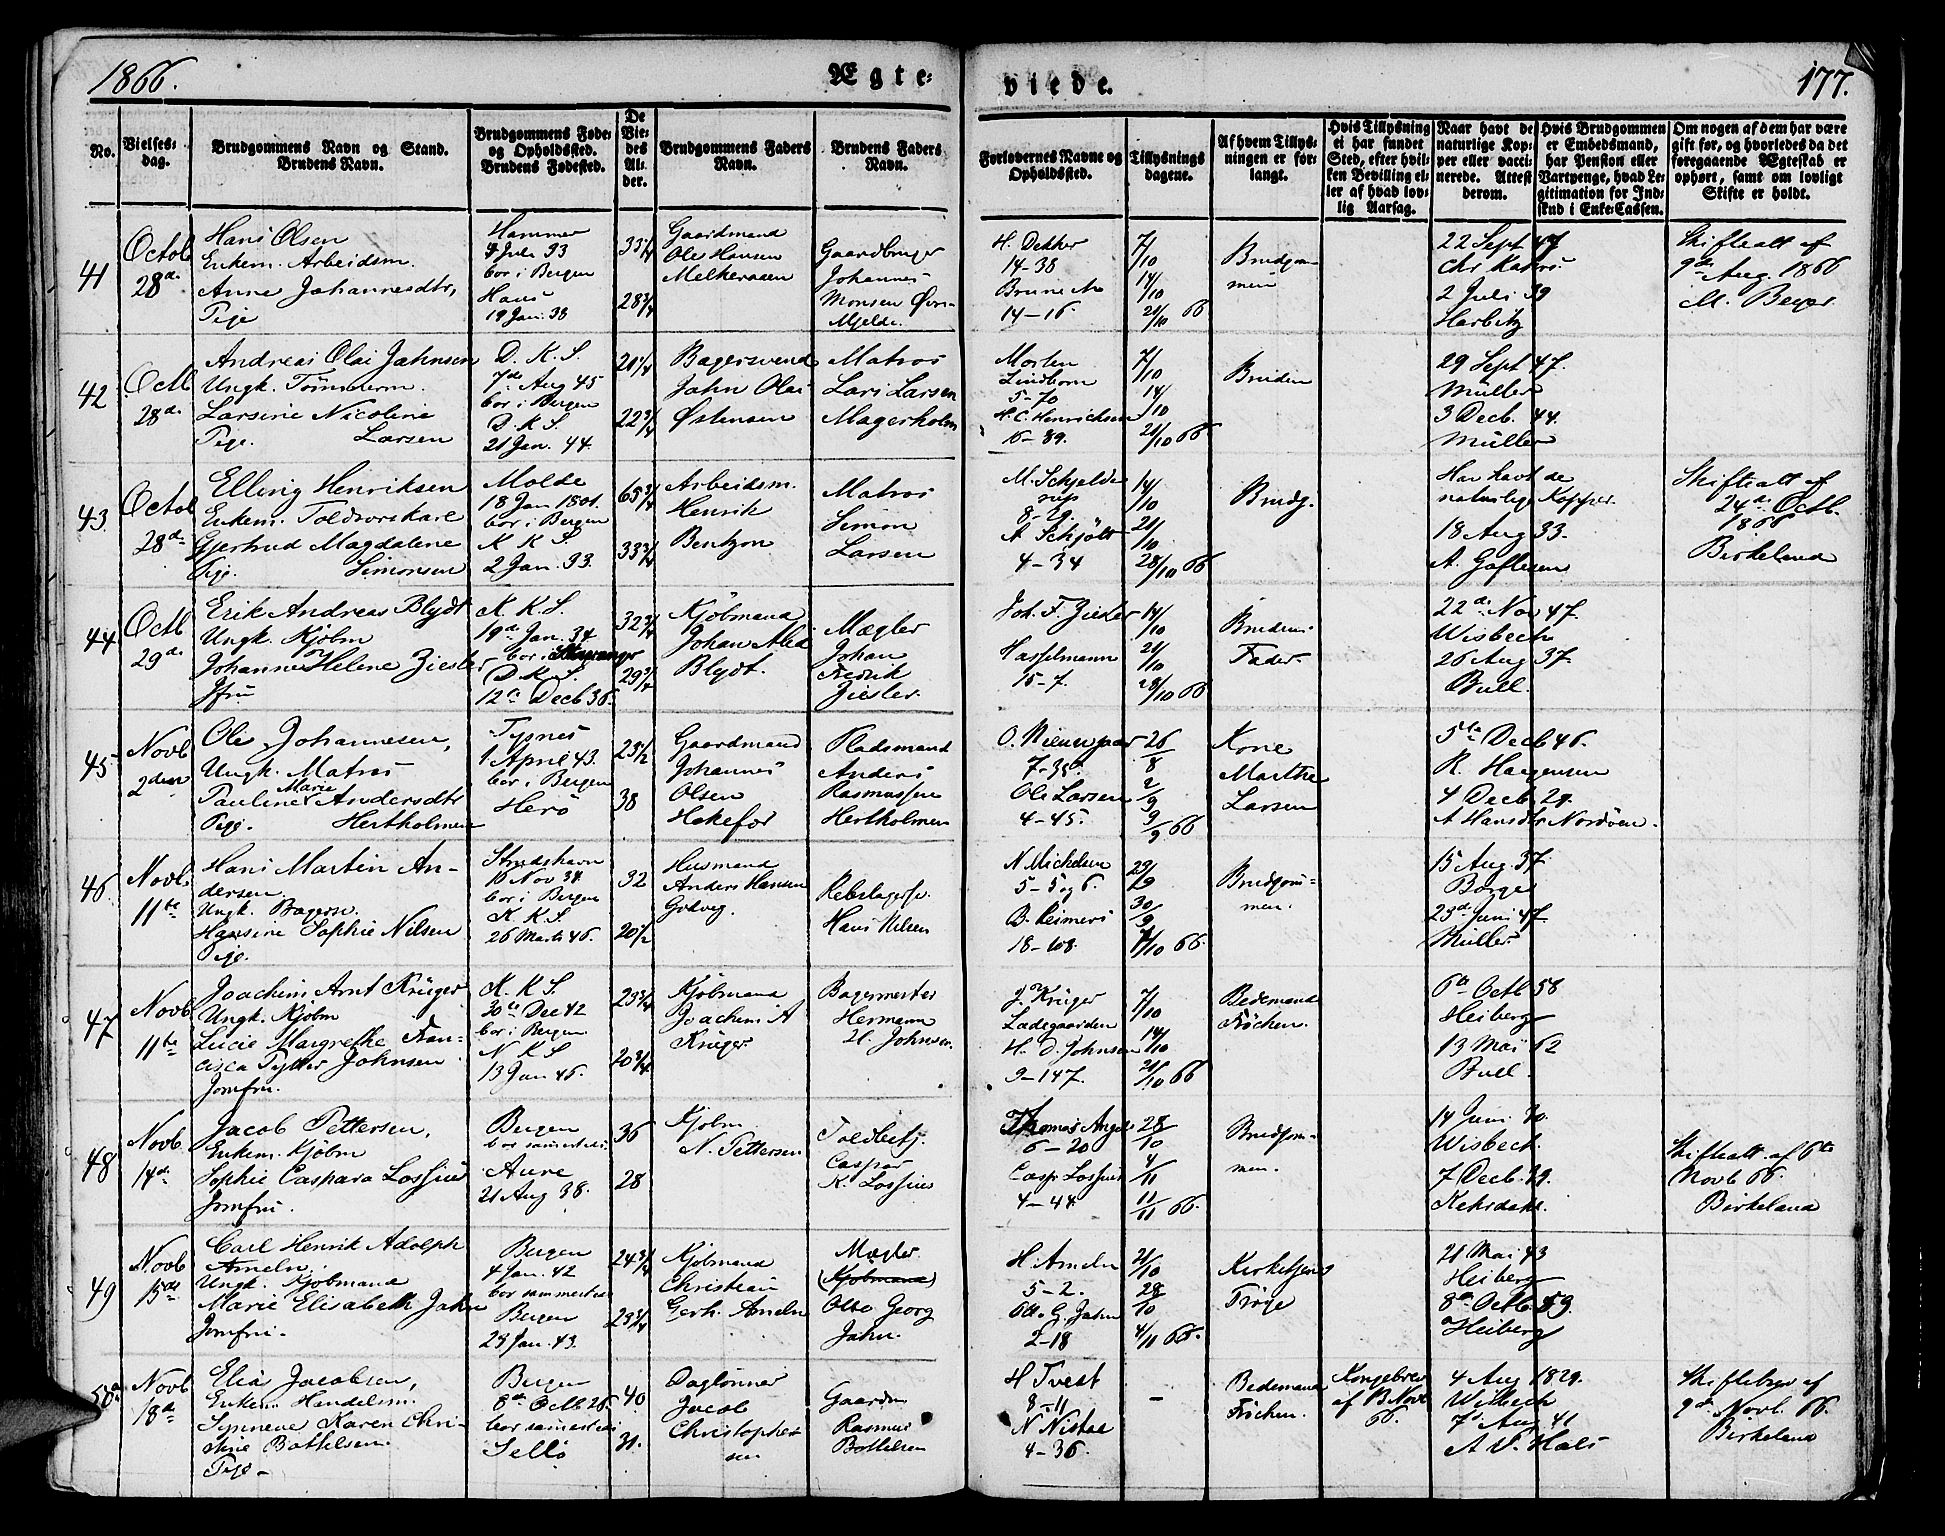 1866.
Ægte-
viede.
177.
No.
Vielses-
dag.
Brudgommens Navn og Stand.
Brudens Navn.
Brudgommens Føde-
og Opholdssted.
Brudens Fødested.
De
Vie-
des
Al-
der.
Brudgommens Faders
Navn.
Brudens Faders
Navn.
Forlovernes Navne og
Opholdssted.
Tillysnings
dagene.
Af hvem Tillys-
ningen er for-
langt.
Hvis Tillysning
ei har fundet
Sted, efter hvil-
ken Bevilling el-
ler af hvad lov-
lig Aarsag.
Naar havt de
naturlige Kop-
per eller vacci-
nerede. Attest
derom.
Hvis Brudgommen
er Embedsmand,
har Pension eller
Vartpenge, hvad Le-
gitimation for Ind-
skud i Enke-Cassen.
Om nogen af dem har være
gift før, og hvorledes da det
foregaaende Ægteskab er
ophørt, samt om lovligt
Skifte er holdt.
41
Octob
28de
Hans Olsen
Enkem. Arbeidsm.
Anne Johannesdtr,
Pige
Hammer
4 Juli 33
bor i Bergen
Haus
19 Jan. 38
33 1/4
28 3/4
Gaardmand
Ole Hansen
Melkeraaen
Gaardbruger
Johannes
Monsen Øvre
Mjelde.
H. Dekker
14-38
Brune
14-16.
7/10
14/10
21/10 66
Brudgom-
men
22 Sept 47
2 Juli 39
Herbitz
Skifteatt af
9de Aug. 1866
M. Beyer
42
Octb
28de
Andreas Olai Jahnsen
Ungk. Tømmerm.
Larsine Nicoline
Pige. Larsen
D. K. S.
7de Aug 45
bor i Bergen
D. K. S.
21 Jan. 44.
21 1/4
22 3/4
Bagersvend
Jahn Olai
Østensen
Matros
Lars Larsen
Magerholm
Morten
Lindborn
5-70
H. C. Henrichsen
16-89.
7/10
14/10
21/10 66
Bruden
29 Sept 47.
Müller
3 Decb. 44.
Müller
43
Octob
28de
Elling Henriksen
Enkem. Toldrorskarl
Gjertrud Magdalene
Pige. Simonsen
Molde
18 Jan 1801.
bor i Bergen
K. K. S.
2 Jan. 33.
65 3/4
33 3/4
Arbeidsm.
Henrik
Bentzon
Matros
Simon
Larsen
M. Schjelde
rup
8-29.
A Schjölt
4-34
14/10
21/10
28/10 66
Brudg.
Har havt de
naturlige Kopper.
18 Aug 33.
Skifteatt af
24de Octb.
1866
Birkeland
44
Octb
29de
Erik Andreas Blydt
Ungk. Kjøbm
Johanne Helene Ziesler
Jfru
K. K. S.
19de Jan. 34
bor i Stavanger
D. K. S.
12te Decb 36.
32 3/4
29 3/4
Kjöbmand
Johan
Blydt.
Mægler
Johan
Fredrik
Ziesler.
Joh. F. Ziesler
Hasselmann
15-7.
14/10
21/10
28/10 66
Brudens
Fader.
22de Nov 47.
Wisbech
26 Aug 37.
Bull.
45
Novb
2den
Ole Johannesen,
Ungk. Matros
Pauline Marie Andersdtr
Pige. Hertholmen
Tysnes
1 April 43.
bor i Bergen
Herö
23 1/2
38
Gaardmand
Johannes
Olsen
Hekefor
Pladsmand
Anders
Rasmussen
Hertholmen
7-35
Ole Larsen
4-45.
26/8
2/9
9/9 66
Kone
Marthe
Larsen
5te Decb 46.
R. Haagensen
4 Decb. 29.
A Hansdtr Nordöen.
46
Novb.
11te
Hans Martin An-
dersen
Ungk. Bagersv.
Hansine Sophie Nilsen
Pige.
Strudshavn
Nov 34
bor i Bergen
K. K. S.
26 Marts 46.
32
20 1/2
Husmand
Anders Hansen
Rebslagersv.
Hans Nilsen
N Michelsen
5-5 og 6.
B. Reimers
18-108.
23/9
30/9
7/10 66.
Brudgom-
men.
15 Aug. 37.
Borge
23de Juni 47.
Müller.
47
Novb
11te
Joachim Arnt Krüger
Ungk. Kjöbm
Lucie Margrethe Fran-
cisca Johnsen
Jomfru.
K. K. S.
30te Dec 42
bor i Bergen
N. K. S.
13 Jan 46.
23 3/4
20 3/4
Kjöbmand
Joachim A
Krüger
Bagermester
Hermann
H. Johnsen.
J. Krüger
Ladegaarden
H. D. Johnsen
9-147.
7/10
14/10
21/10 66
Bedemand
Fröchen.
6te Octb 58
Heiberg
13 Mai 62
Bull.
48
Novb
14de
Jacob Pettersen,
Enkem. Kjöbm
Sophie Caspara Lossius
Jomfru.
Bergen
bor sammesteds
Aure
21 Aug 38.
36
28
Kjöbm
N. Pettersen
Toldbetj.
Caspar
K. Lossius
Thomas Angel
6-20
Casp. Lossius
4-44
28/10
4/11
11/11 66.
Brudgom-
men.
14 Juni 30.
Wisbech.
7 Decb. 39.
Skifteatt. af 6te
Novb 66.
Birkeland
49
Novb
15de
Carl Henrik Adolph
Ameln.
Ungk. Kjöbmand
Marie Elisabeth Jahn
Jomfru.
Bergen
4 Jan. 42
bor sammesteds
Bergen
23 Jan. 43.
24 3/4
23 3/4
Kjöbmand
Christian
Gerh. Ameln
Mægler
(Kjöbmand)
Otto Georg
Jahn.
H. Ameln
5-2.
Ott. G. Jahn
2-18
21/10
28/10
4/11 66.
Kirketjener
Fröje
21 Mai 43
Heiberg
8de Octb. 59.
Heiberg
50
Novb
18de
Elias Jacobsen,
Enkem. Handelsm.
Synneve Karen Chri-
stine Bottelsen.
Pige
Bergen
8de Octb 26.
bor sammesteds
Sellö
40
31.
Daglönner
Jacob
Christopher
sen
Gaardm
Rasmus
Bottelsen
H Tvest
8-11
N Nistad
4-36.
-
Bedemand
Fröchen.
Kongebrev
af 8 Novb
66.
4 Aug 1829.
Wisbech
7de Aug 41
Skiftebrev af
9de Novb. 66.
Birkeland